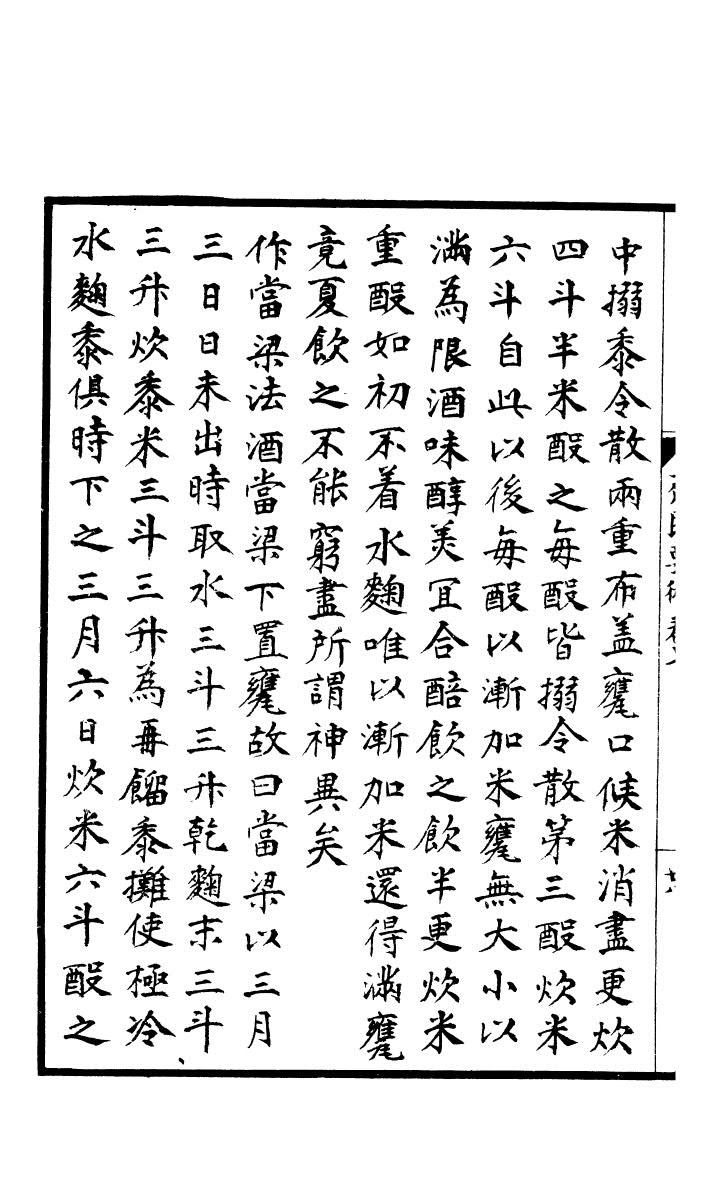 中搦黍令散兩重布盖甕口候米消盡更炊
四斗半米酘之毎酘皆搦令散第三酘炊米
六斗自此以後毎酘以漸加米甕無大小以
滿為限酒味醇美宜合醅飲之飲半更炊米
重酘如初不着水麴唯以漸加米還得滿甕
竟夏飲之不能窮盡所謂神異矣
作當梁法酒當梁下置甕故曰當梁以三月
三日日未出時取水三斗三升乾麴末三斗
三升炊黍米三斗三升為再餾黍攤使極冷
水麴黍俱時下之三月六日炊米六斗酘之